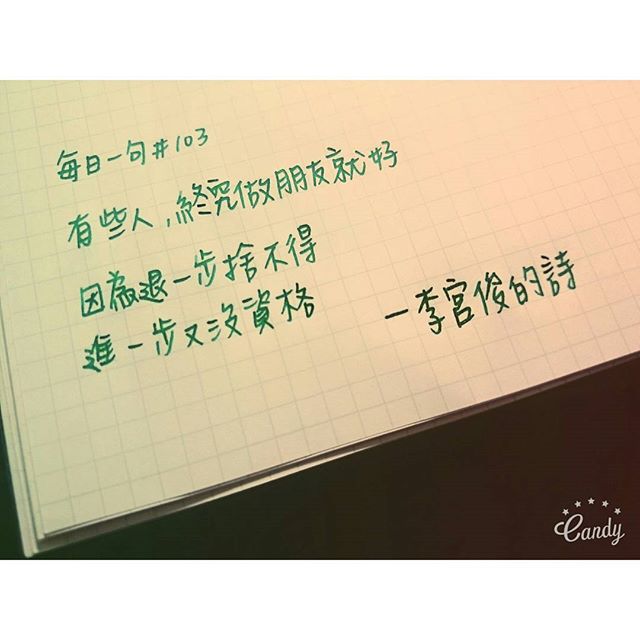 每日一句#103
有些人,終究做朋友就好
因為退一步捨不得
進一步又沒資格
—李宮俊的詩
Candy